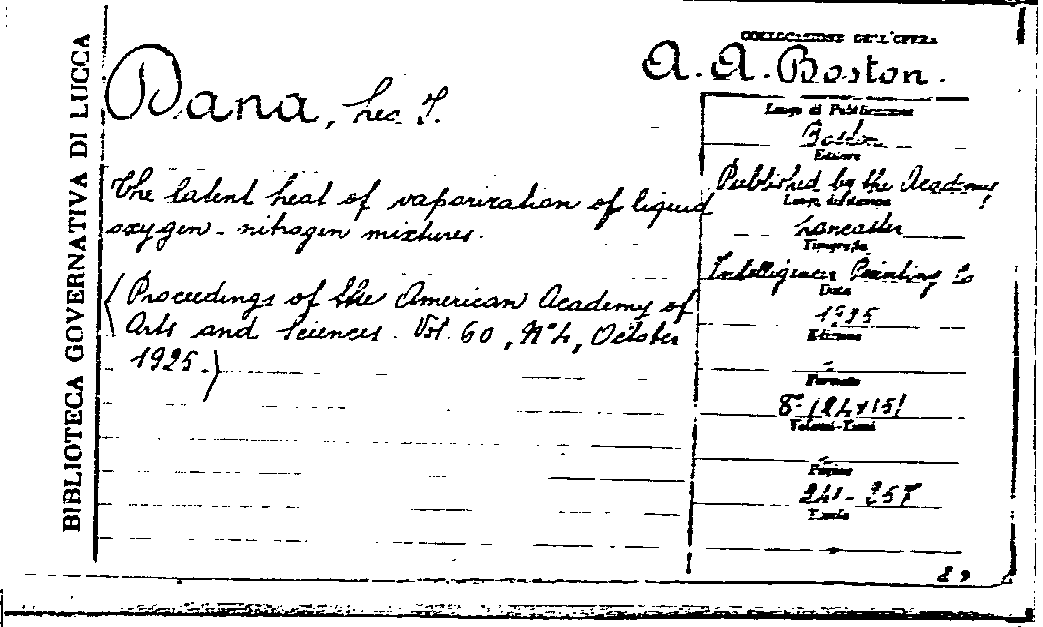 BIBLIOTECA GOVERNATIVA DI LUCCA
COLLOCAZIONE DELL'OPERA
A. A. Boston.
Dana, Leo. I.
The latent heat of vaporization of liquid
oxygen - nitrogen mixtures.
(Proceedings of the American Academy of
Arts and Sciences. Vol. 60, N° 4, October
1925.)
Luogo di Pubblicazione
Boston
Editore
Published by the Academy
Luogo di stampa
Lancaster
Tipografia
Intelligencer Printing Co
Data
1925
Edizione
Formato
8° (24x15)
Volumi-Tomi
Pagine
241-257
Tavole